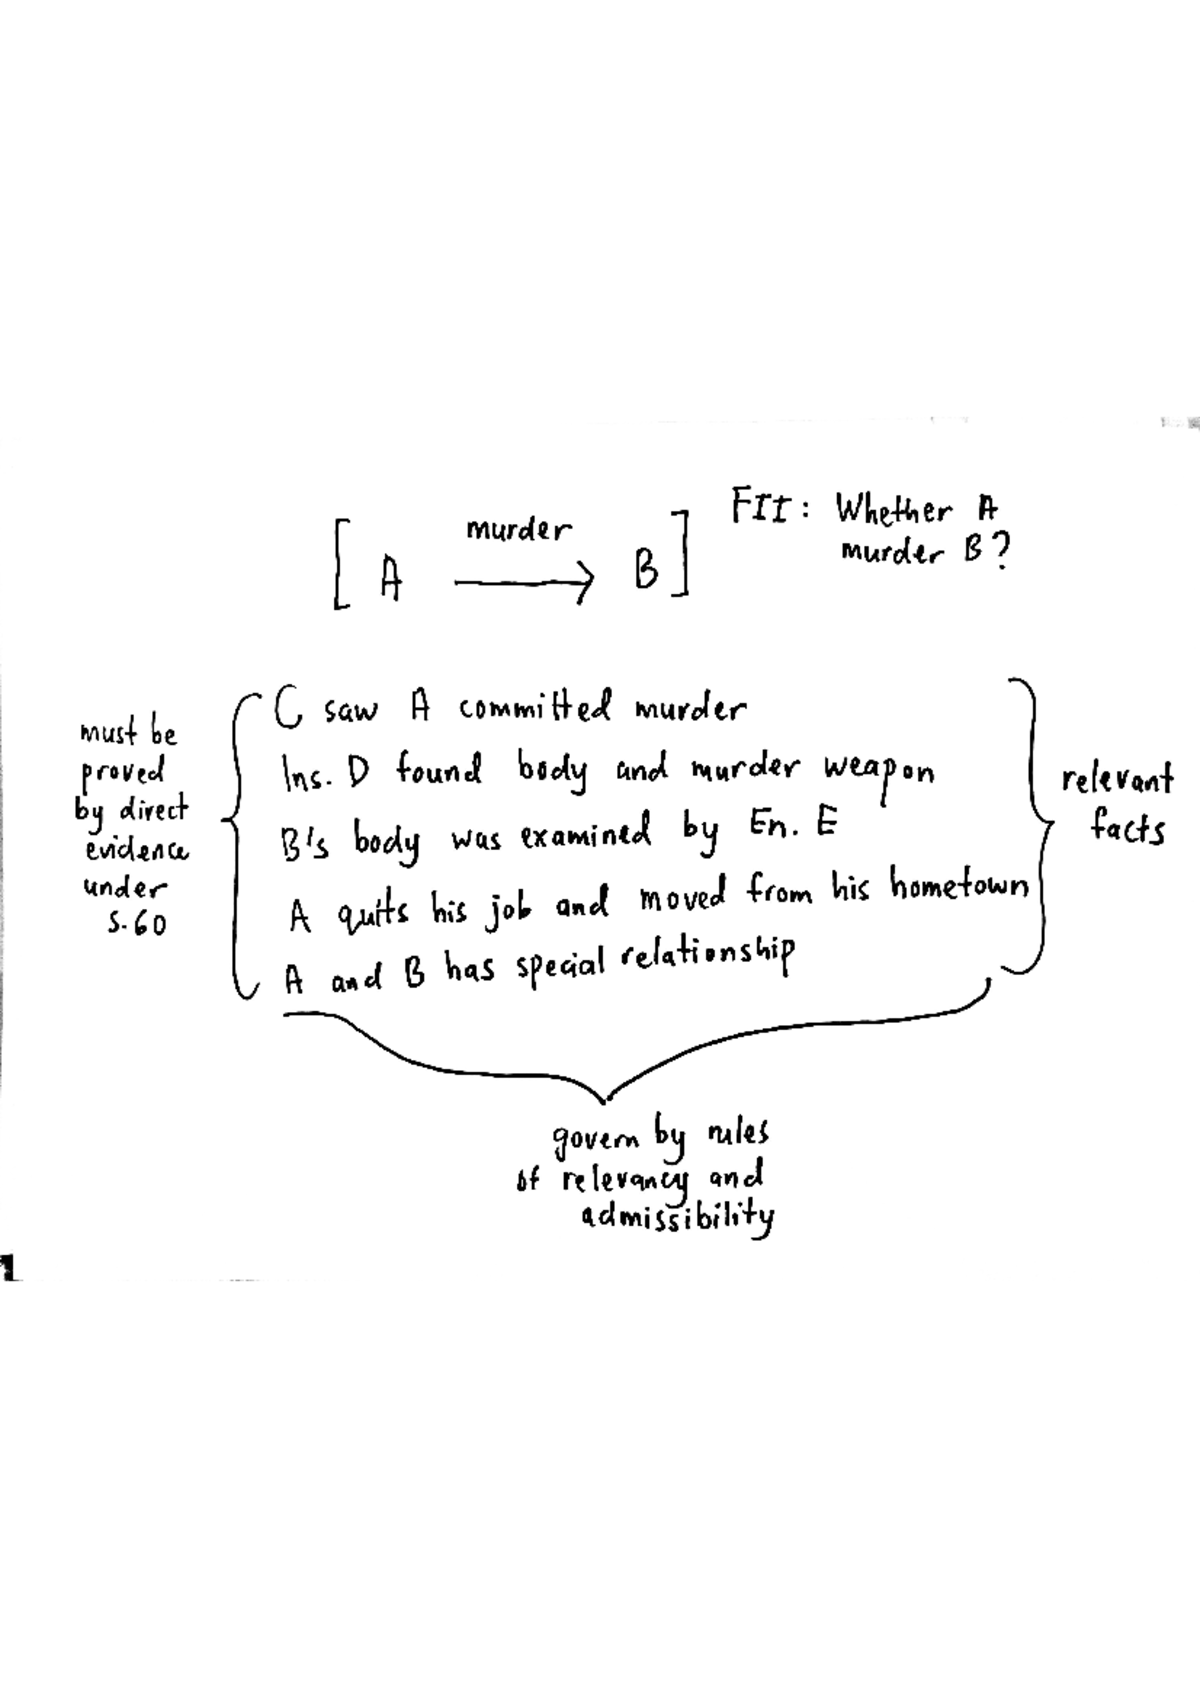 murder
[ A → B ]
FII: Whether A
murder B?
must be
proved
by direct
evidence
under
S.60
C saw A committed murder
Ins. D found body and murder weapon
B's body was examined by En. E
A quits his job and moved from his hometown
A and B has special relationship
relevant
facts
govern by rules
of relevancy and
admissibility